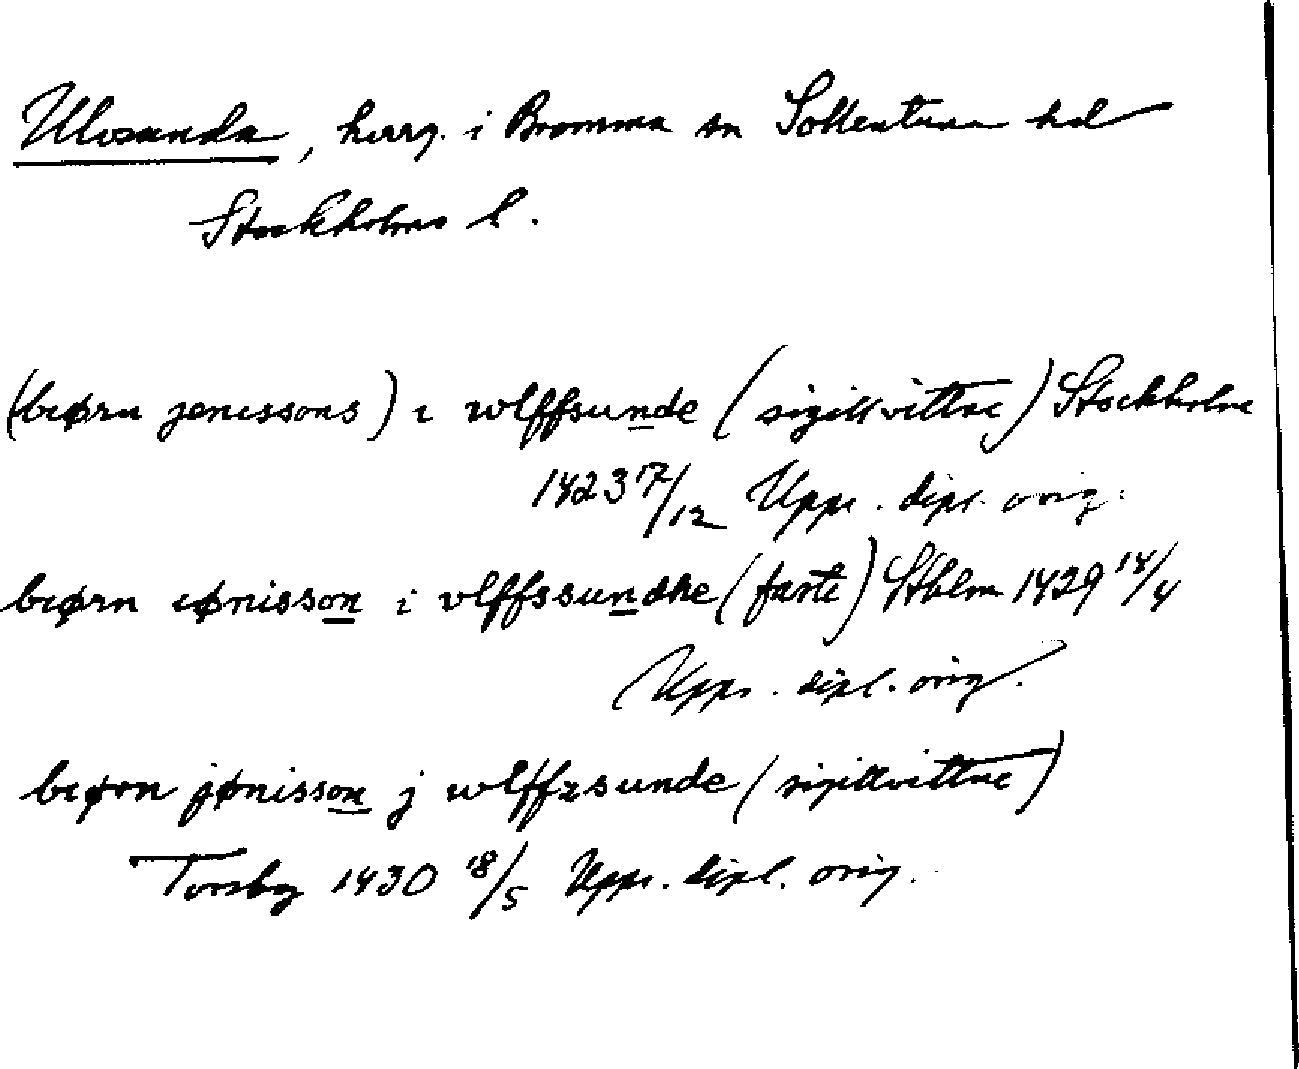 Ulvsunda, herrg. i Bromma sn Sollentuna hd
Stockholms l.
(biørn jenissons) i wlffsunde (sigillvittne) Stockholm
1423 17/12 Upps. dipl. orig.
biørn iønisson i vlffssundhe (faste) Sthlm 1429 14/4
Upps. dipl. orig.
biørn jønisson j wlffzsunde (sigillvittne)
Torsby 1430 18/5 Upps. dipl. orig.